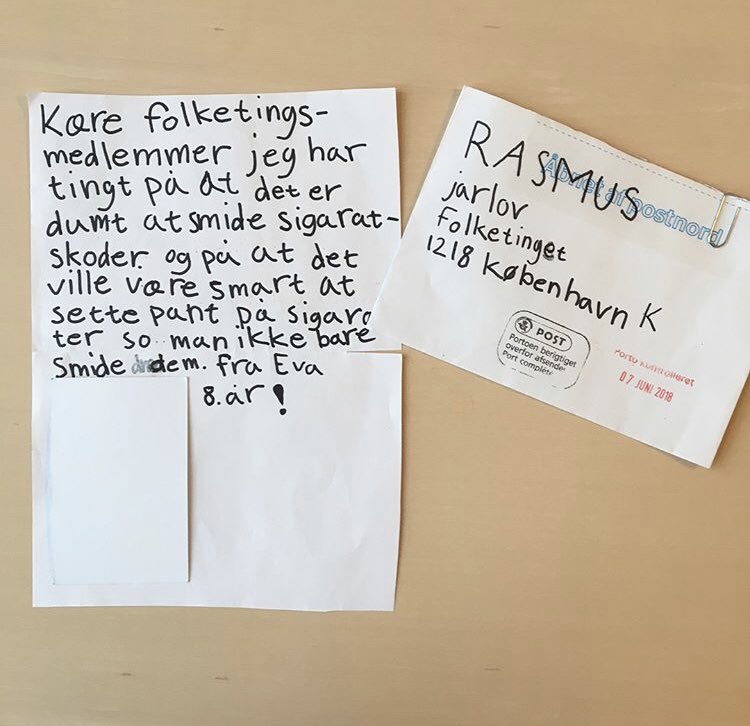 Kære folketings-
medlemmer jeg har
tingt på at det er
dumt at smide sigarat-
skoder og på at det
ville være smart at
sette pant på sigara
ter so man ikke bare
smide dem. fra Eva
8. år !
RASMUS
jarlov
Folketinget
1218 København K
Åbnet af postnord
POST
Portoen berigtiget
overfor afsender
Port complet
Porto kontrolleret
07 JUNI 2018